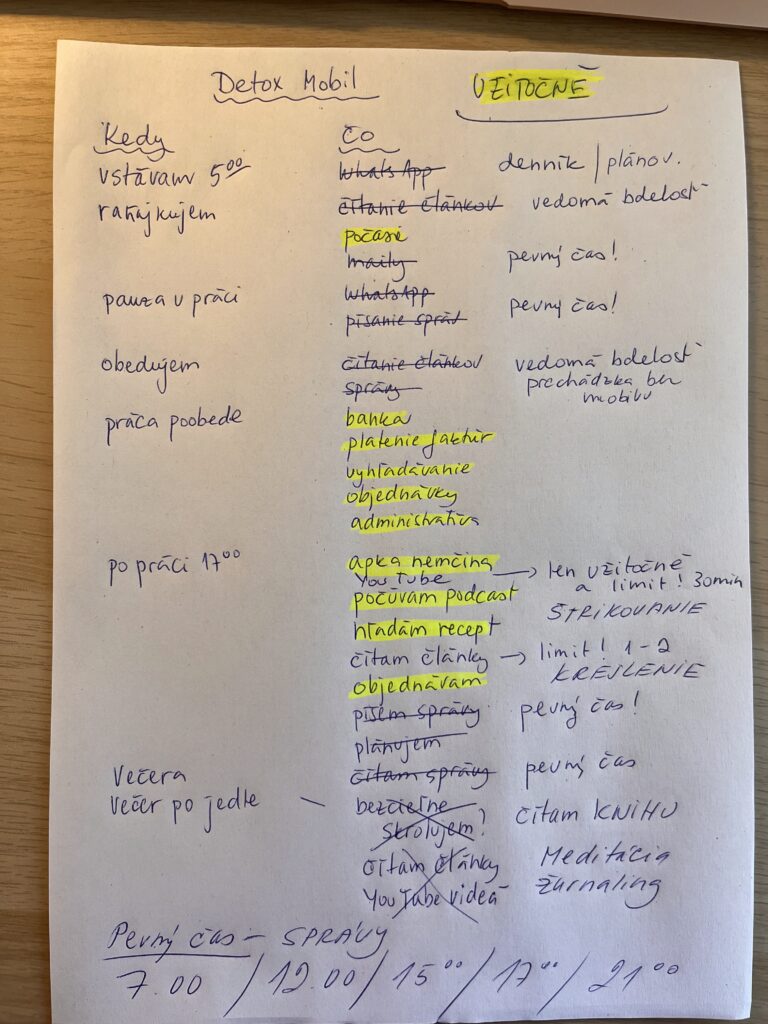 Detox Mobil UŽITOČNĚ
Kedy Čo
vstávam 5⁰⁰ WhatsApp denník / plánov.
raňajkujem čítanie článkov vedomá bdelosť
počasie
maily pevný čas!
pauza v práci WhatsApp pevný čas!
písanie správ
obedujem čítanie článkov vedomá bdelosť
správy prechádzka bez mobilu
práca poobede banka
platenie faktúr
vyhľadávanie
objednávky
administratíva
po práci 17⁰⁰ apka nemčina
YouTube → len užitočné a limit! 30min
počúvam podcast ŠTRIKOVANIE
hľadám recept
čítam články → limit! 1-2
objednávam KRESLENIE
píšem správy pevný čas!
plánujem
Večera čítam správy pevný čas
večer po jedle - bezcieľne skrolujem? čítam KNIHU
čítam články Meditácia
YouTube videá žurnaling
Pevný čas - SPRÁVY
7.00 / 12.00 / 15⁰⁰ / 17⁰⁰ / 21⁰⁰